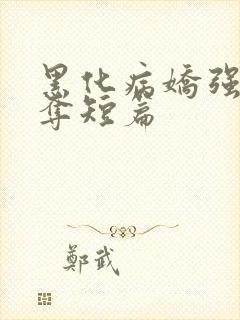 黑化病嬌强
奪短篇
鄭武